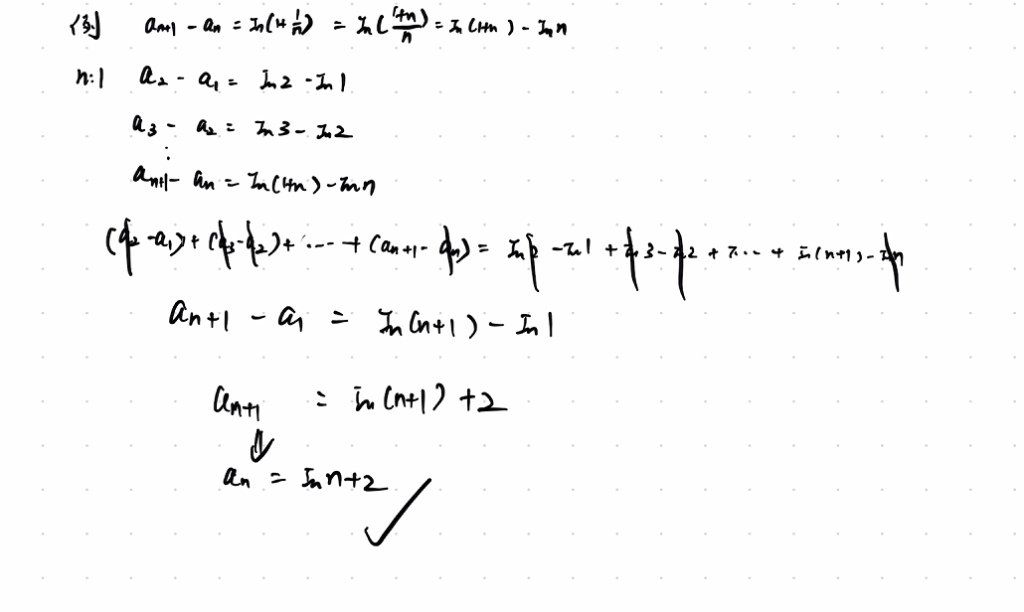 例 aₙ₊₁ - aₙ = ln(1+1/n) = ln((1+n)/n) = ln(1+n) - ln n
n=1 a₂ - a₁ = ln2 - ln1
a₃ - a₂ = ln3 - ln2
⋮
aₙ₊₁ - aₙ = ln(1+n) - ln n
(a₂ - a₁) + (a₃ - a₂) + ⋯ + (aₙ₊₁ - aₙ) = ln2 - ln1 + ln3 - ln2 + ⋯ + ln(n+1) - ln n
aₙ₊₁ - a₁ = ln(n+1) - ln1
aₙ₊₁ = ln(n+1) + 2
⇓
aₙ = ln n + 2 ✓